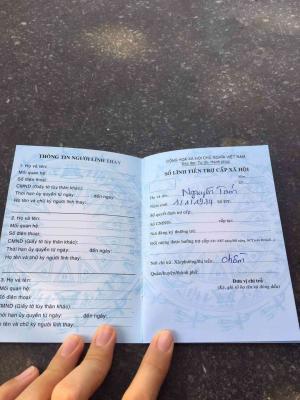 THÔNG TIN NGƯỜI LĨNH THAY
1. Họ và tên:
Mối quan hệ:
Số điện thoại:
CMND (Giấy tờ tùy thân khác):
Thời hạn ủy quyền từ ngày: đến ngày:
Họ tên và chữ ký người lĩnh thay:
2. Họ và tên:
Mối quan hệ:
Số điện thoại:
CMND (Giấy tờ tùy thân khác):
Thời hạn ủy quyền từ ngày: đến ngày:
Họ tên và chữ ký người lĩnh thay:
3. Họ và tên:
Mối quan hệ:
Số điện thoại:
CMND (Giấy tờ tùy thân khác):
Thời hạn ủy quyền từ ngày: đến ngày:
Họ tên và chữ ký người lĩnh thay:
CỘNG HÒA XÃ HỘI CHỦ NGHĨA VIỆT NAM
Độc lập - Tự do - Hạnh phúc
SỔ LĨNH TIỀN TRỢ CẤP XÃ HỘI
Họ và tên: Nguyễn
Năm sinh:
Số quyết định trợ cấp:
Số CMND: cấp tại:
Nơi đăng ký thường trú:
Mỗi tháng được hưởng trợ cấp
Nơi chi trả: Xã/phường/thị trấn:
Quận/huyện/thành phố:
Đơn vị chi trả
(Ký, ghi rõ họ tên và đóng dấu)